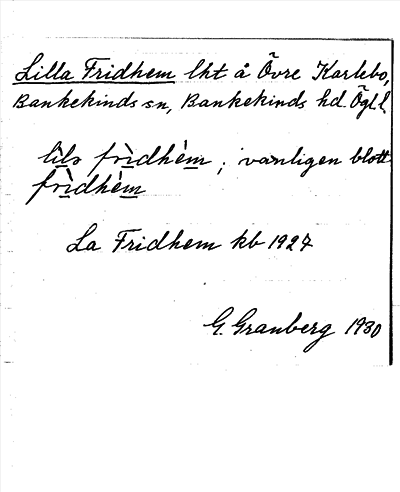 Lilla Fridhem lht å Övre Karlebo,
Bankekinds sn, Bankekinds hd. Ögl.
lìla frìdhèm; vanligen blott
frìdhèm
La Fridhem kb 1927
G. Granberg 1930